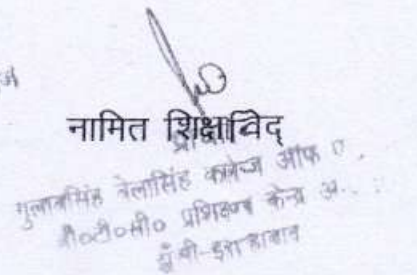 नामित शिक्षाविद्
गुलाबसिंह तेलासिंह कालेज आफ ए.
बी०टी०सी० प्रशिक्षण केन्द्र अ..
झूँसी-इलाहाबाद